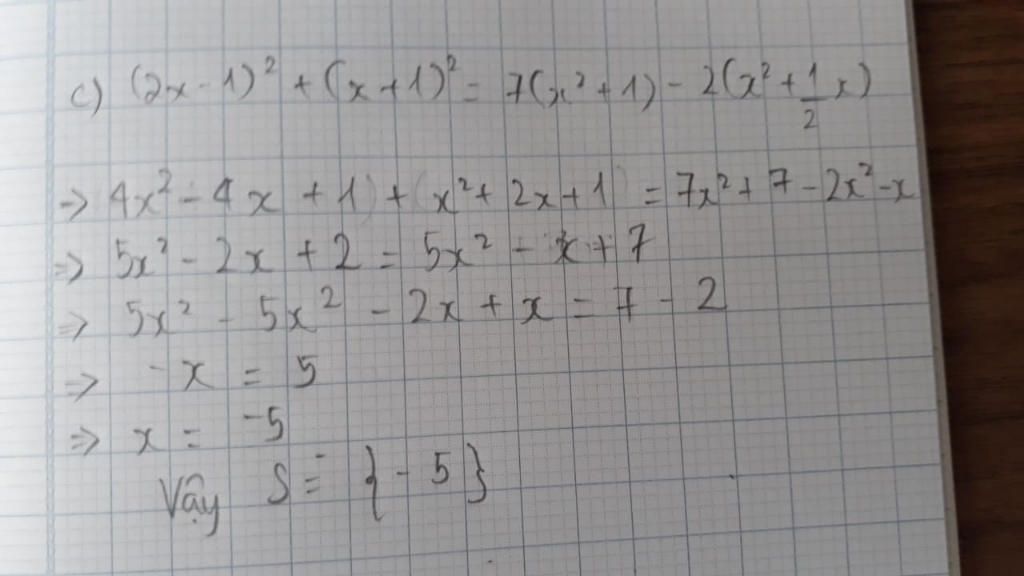 c) (2x - 1)² + (x + 1)² = 7(x² + 1) - 2(x² + 1/2 x)
→ 4x² - 4x + 1) + (x² + 2x + 1) = 7x² + 7 - 2x² - x
⇒ 5x² - 2x + 2 = 5x² - x + 7
⇒ 5x² - 5x² - 2x + x = 7 - 2
⇒ -x = 5
⇒ x = -5
Vậy S = { - 5 }